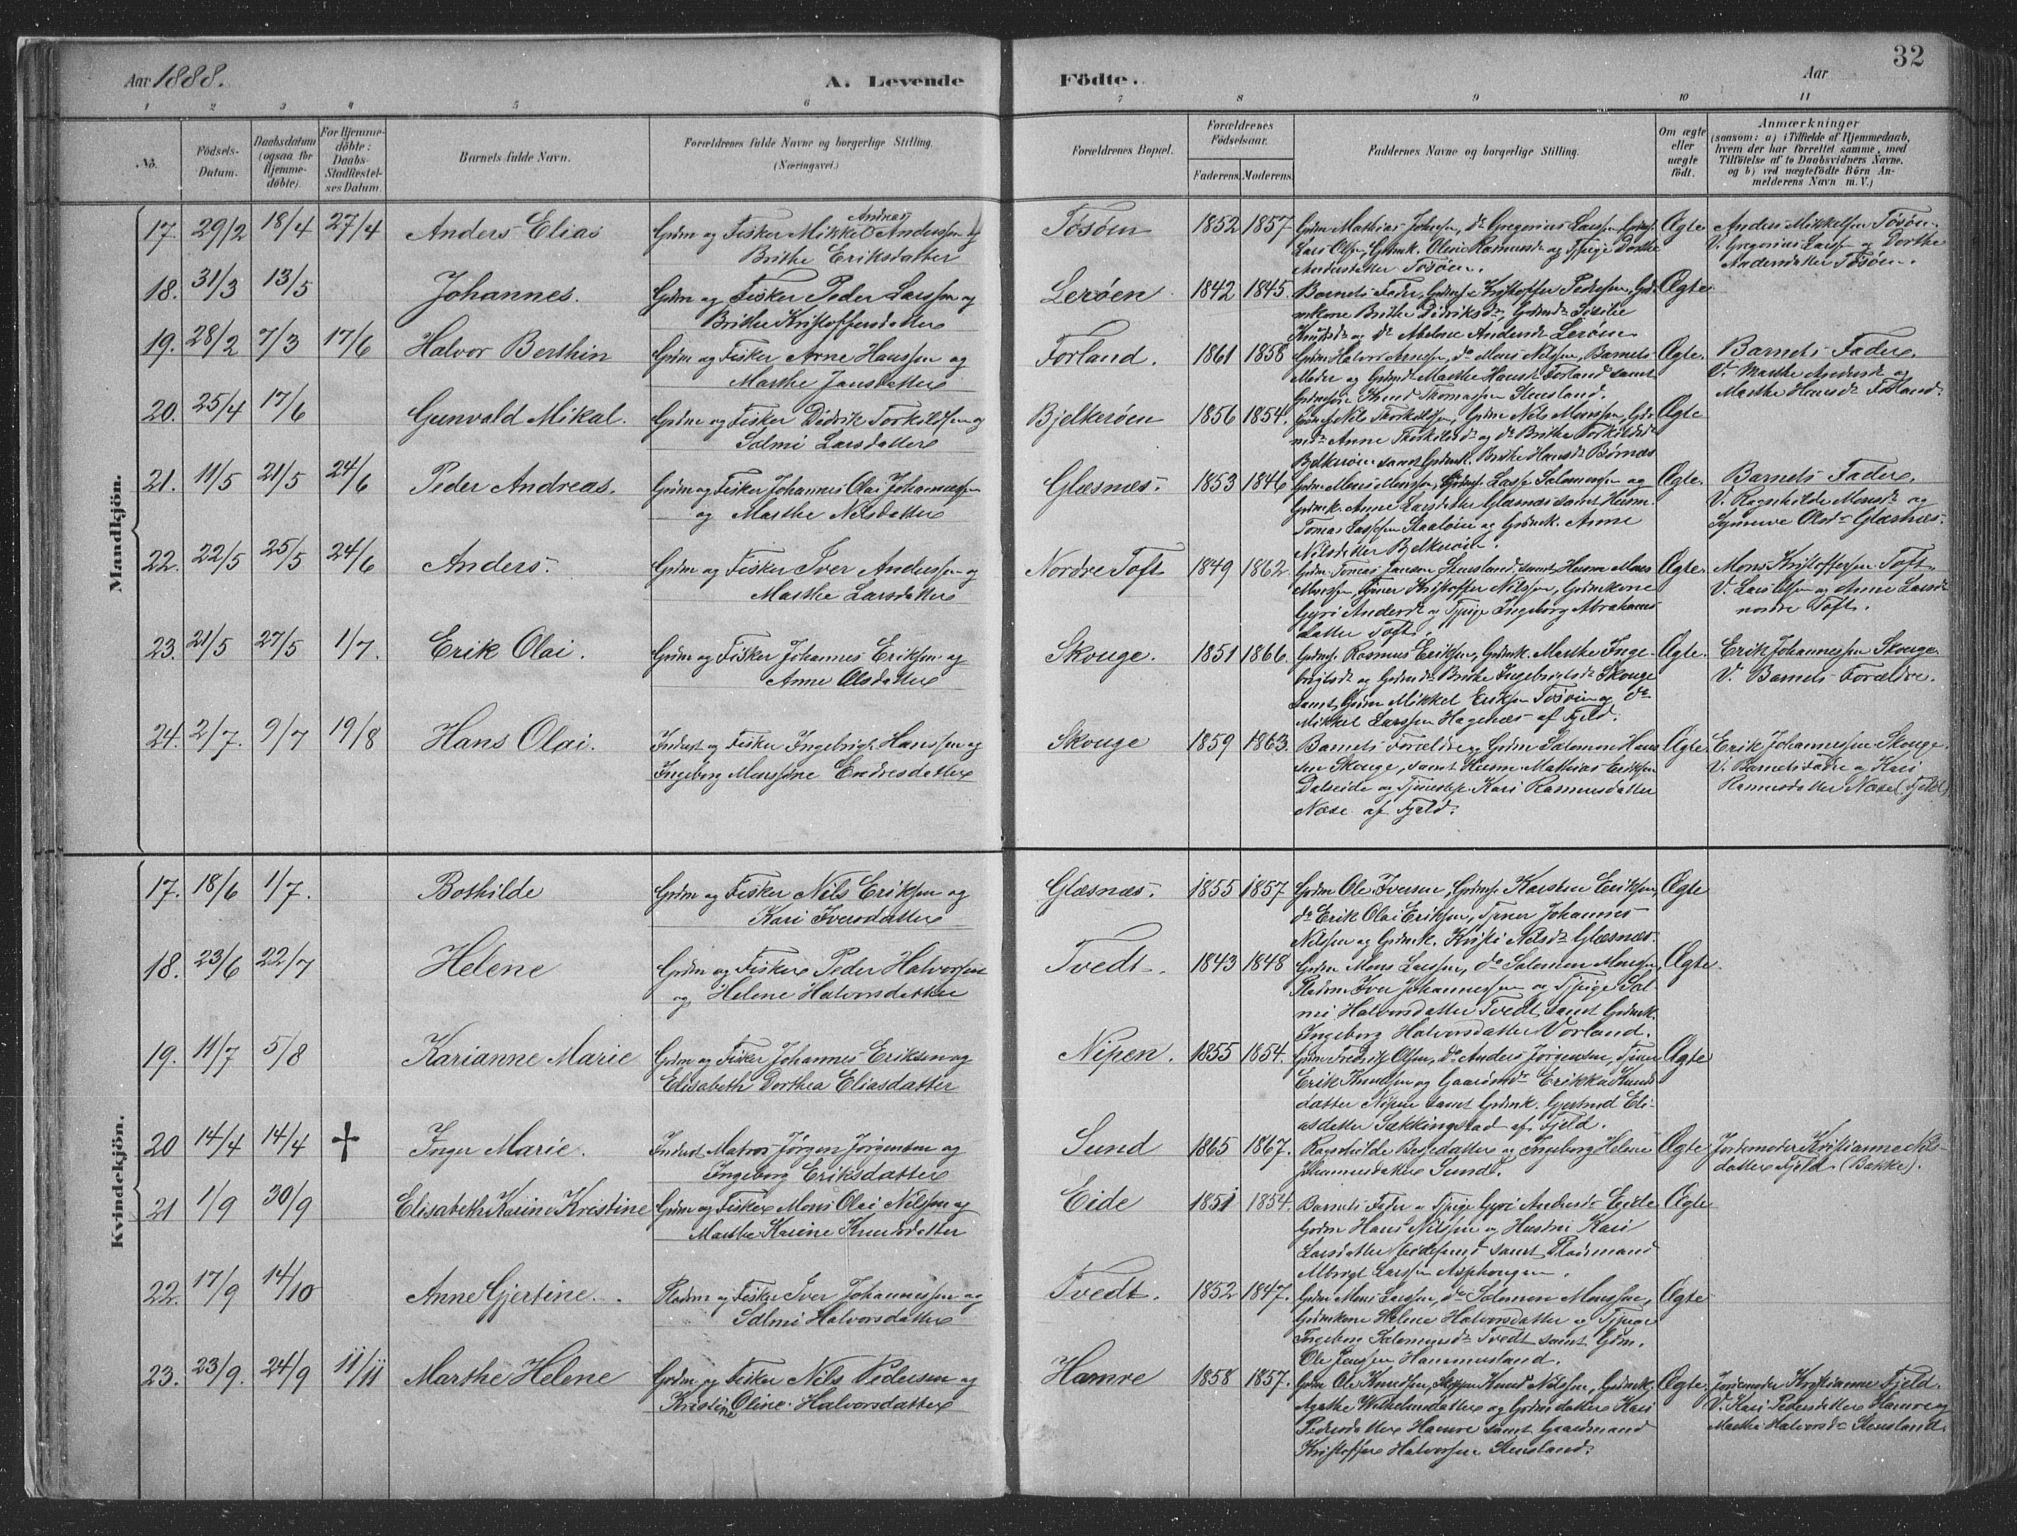 32
Aar 1888.
A. Levende Födte.
Aar
1 2 3 4 5 6 7 8 9 10 11
No.
Födsels-Datum.
Daabsdatum (ogsaa for Hjemmedöbte).
For Hjemmedöbte: Daabs-Stadfæstelses Datum
Barnets fulde Navn.
Forældrenes fulde Navne og borgerlige Stilling. (Næringsvei.)
Forældrenes Bopæl.
Forældrenes Födselsaar.
Faderens. Moderens.
Faddernes Navne og borgerlige Stilling.
Om ægte eller uægte födt.
Anmærkninger
(saasom: a) i Tilfælde af Hjemmedaab, hvem der har forrettet samme, med Tilföielse af to Daabsvidners Navne. og b) ved uægtefödte Börn Anmelderens Navn m. V.)
Mandkjön.
17. 29/2 18/4 27/4 Anders Elias
Gdm og Fisker Mikkel Andreas Anderssen og
Brithe Eriksdatter
Tøsøen 1852 1857
Gdm Mathias Johnsen, do Gregorius Larssen, Gdms
Lars Olsen, Gdmk. Oline Rasmusdr og Tjpige Dorthe
Andersdatter Tøsøen.
Ægte
Anders Mikkelsen Tøsøen.
V. Gregorius Larssen og Dorthe
Andersdatter Tøsøen.
18. 31/3 13/5 Johannes.
Gdm og Fisker Peder Larssen og
Brithe Kristoffersdatter
Lerøen 1842 1845.
Barnets Fader, Gdms Kristoffer Pedersen, Gd-
mkone Brithe Didriksdr, Gdmdr Sisilie
Knudsdr og do Abelone Andersdr Lerøen
Ægte
19. 28/2 7/3 17/6 Halvor Berthin
Gdm og Fisker Arne Hanssen og
Marthe Jansdatter
Forland. 1861 1858
Gdm Halvor Arnesen, do Mons Nilsen, Barnets
Moder og Gdmdr Marthe Hansdr Forland samt
Gdmsøn Knud Thomassen Stensland.
Ægte.
Barnets Fader.
V. Marthe Andersdr og
Marthe Hansdr Forland.
20. 25/4 17/6 Gunvald Mikal.
Gdm og Fisker Didrik Torkildsen og
Salmi Larsdatter
Bjelkerøen 1856 1854.
Gdm Nils Thorkildsen, Gdm Nils Monssen, Gd-
mdr Anne Thorkildsdr og do Brithe Torkildsdr
Bjelkerøen samt Gdmk. Brithe Hansdr Børnæs
Ægte
21. 11/5 21/5 24/6 Peder Andreas.
Gdm og Fisker Johannes Olai Johannessen
og Marthe Nilsdatter
Glæsnæs. 1853 1846
Gdm Mons Monsen, Gdms. Lasse Salomonsen og
Gdmk. Anne Larsdatter Glæsnæs samt Husm
Tomas Lassesen og Gdmk. Anne
Nilsdatter Bjelkerøen.
Ægte.
Barnets Fader.
V. Ragnhilde Monsdr og
Synneve Olsdr Glæsnæs.
22. 22/5 25/5 24/6 Anders.
Gdm og Fisker Iver Anderssen og
Marthe Larsdatter
Nordre Toft 1849 1862.
Gdm Tomas Jansen Stensland, samt Husm Mons
Monsen, Tjener Kristoffer Nilssen, Gdmkone
Gyri Andersdr og Tjpige Ingeborg Abrahams-
datter Toft.
Ægte.
Mons Kristoffersen Toft.
V. Lars Olsen og Anne Larsdr
nordre Toft.
23. 21/5 27/5 1/7. Erik Olai.
Gdm og Fisker Johannes Eriksen og
Anne Olsdatter
Skouge. 1851 1866.
Gdms. Rasmus Eriksen, Gdmk. Marthe Inge-
brigtsdr og Gdmdr Brithe Ingebrigtsdr Skouge
samt Gdm Mikkel Eriksen Tøsøen og do
Mikkel Larssen Hagenæs af Fjeld.
Ægte.
Erik Johannessen Skouge.
V. Barnets Forældre.
24. 2/7. 9/7 19/8 Hans Olai.
Inderst og Fisker Ingebrigt Hanssen og
Ingeborg Monssine Endresdatter
Skouge 1859 1863.
Barnets Forældre og Gdm Salomon Hans-
sen Skouge, samt Husm Mathias Eriksen
Dalseide og Tjenestep. Kari Rasmusdatter
Næse af Fjeld.
Ægte
Erik Johannessen Skouge.
V. Barnets Fader og Kari
Rasmusdatter Næse (Fjeld)
Kvindekjön.
17. 18/6 1/7. Bothilde
Gdm og Fisker Nils Eriksen og
Kari Iversdatter
Glæsnæs. 1855 1857
Gdm Ole Iversen, Gdms. Karsten Eriksen,
do Erik Olai Eriksen, Tjener Johannes
Nilssen og Gdmk. Kristi Nilsdr Glæsnæs.
Ægte
18. 23/6 22/7 Helene
Gdm og Fisker Peder Halvorsen
og Helene Halvorsdatter
Tvedt. 1843 1848
Gdm Mons Larssen, do Salomon Monsen,
Pladsm Iver Johannessen og Tjpige Sal-
mi Halvorsdatter Tvedt samt Gdmk.
Ingeborg Halvorsdatter Vorland.
Ægte.
19. 11/7 5/8 Karianne Marie
Gdm og Fisker Johannes Eriksen og
Elisabeth Dorthea Eliasdatter
Nipen. 1855 1854.
Gdm Fredrik Olsen, do Anders Jørgensen, Tjener
Erik Knudsen og Gaardmdr Erikka Knuds-
datter Nipen samt Gdmk. Gjertrud Eli-
asdatter Sækkingstad af Fjeld.
Ægte
20 14/4 14/4 † Inger Marie.
Inderst Matros Jørgen Jørgensen og
Ingeborg Eriksdatter
Sund 1865 1867.
Ragnhilde Børgesdatter og Ingeborg Helene
Johannesdatter Sund.
Ægte
Jordemoder Kristianne Nils-
datter Fjeld. (Bakke).
21 1/9 30/9 Elisabeth Karine Kristine
Gdm og Fisker Mons Olai Nilsen og
Marthe Karine Knudsdatter
Eide 1851 1854.
Barnets Fader og Tjpige Gyri Andersdr Eide
Gdm Hans Nilssen og Hustru Kari
Larsdatter samt Pladsmand
Albrigt Larssen.
Ægte
22. 17/9 14/10 Anne Gjertine.
Pladsm og Fisker Iver Johannessen og
Salmi Halvorsdatter
Tvedt. 1852 1847.
Gdm Mons Larssen, do Salomon Monssen,
Gdmkone Helene Halvorsdatter og Tjpige
Ingeborg Salomonsdr Tvedt samt Gdm.
Ole Jenssen Hammersland.
Ægte
23. 23/9. 24/9 11/11 Marthe Helene
Gdm og Fisker Nils Pedersen og
Kristine Oline Halvorsdatter
Hamre 1858 1857.
Gdm Ole Knudsen, Knud Nilsen, Gdmk.
Agathe Wilhelmsdatter og Gdmdatter Kari
Pedersdatter Hamre samt Gaardmand
Kristoffer Halvorsen Stensland.
Ægte.
Jordemoder Kristianne Fjeld.
V. Kari Pedersdatter Hamre og
Marthe Halvorsdr Stensland.